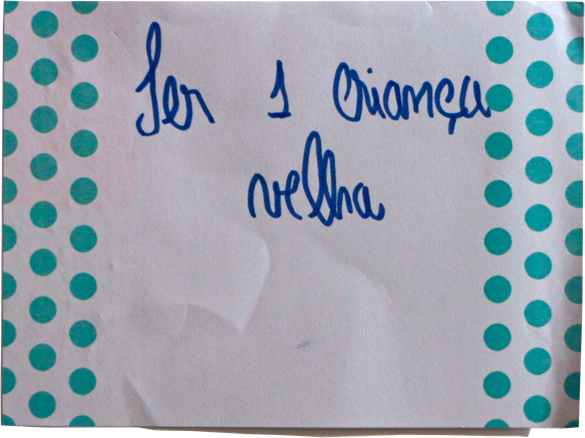 Ser 1 criança
velha